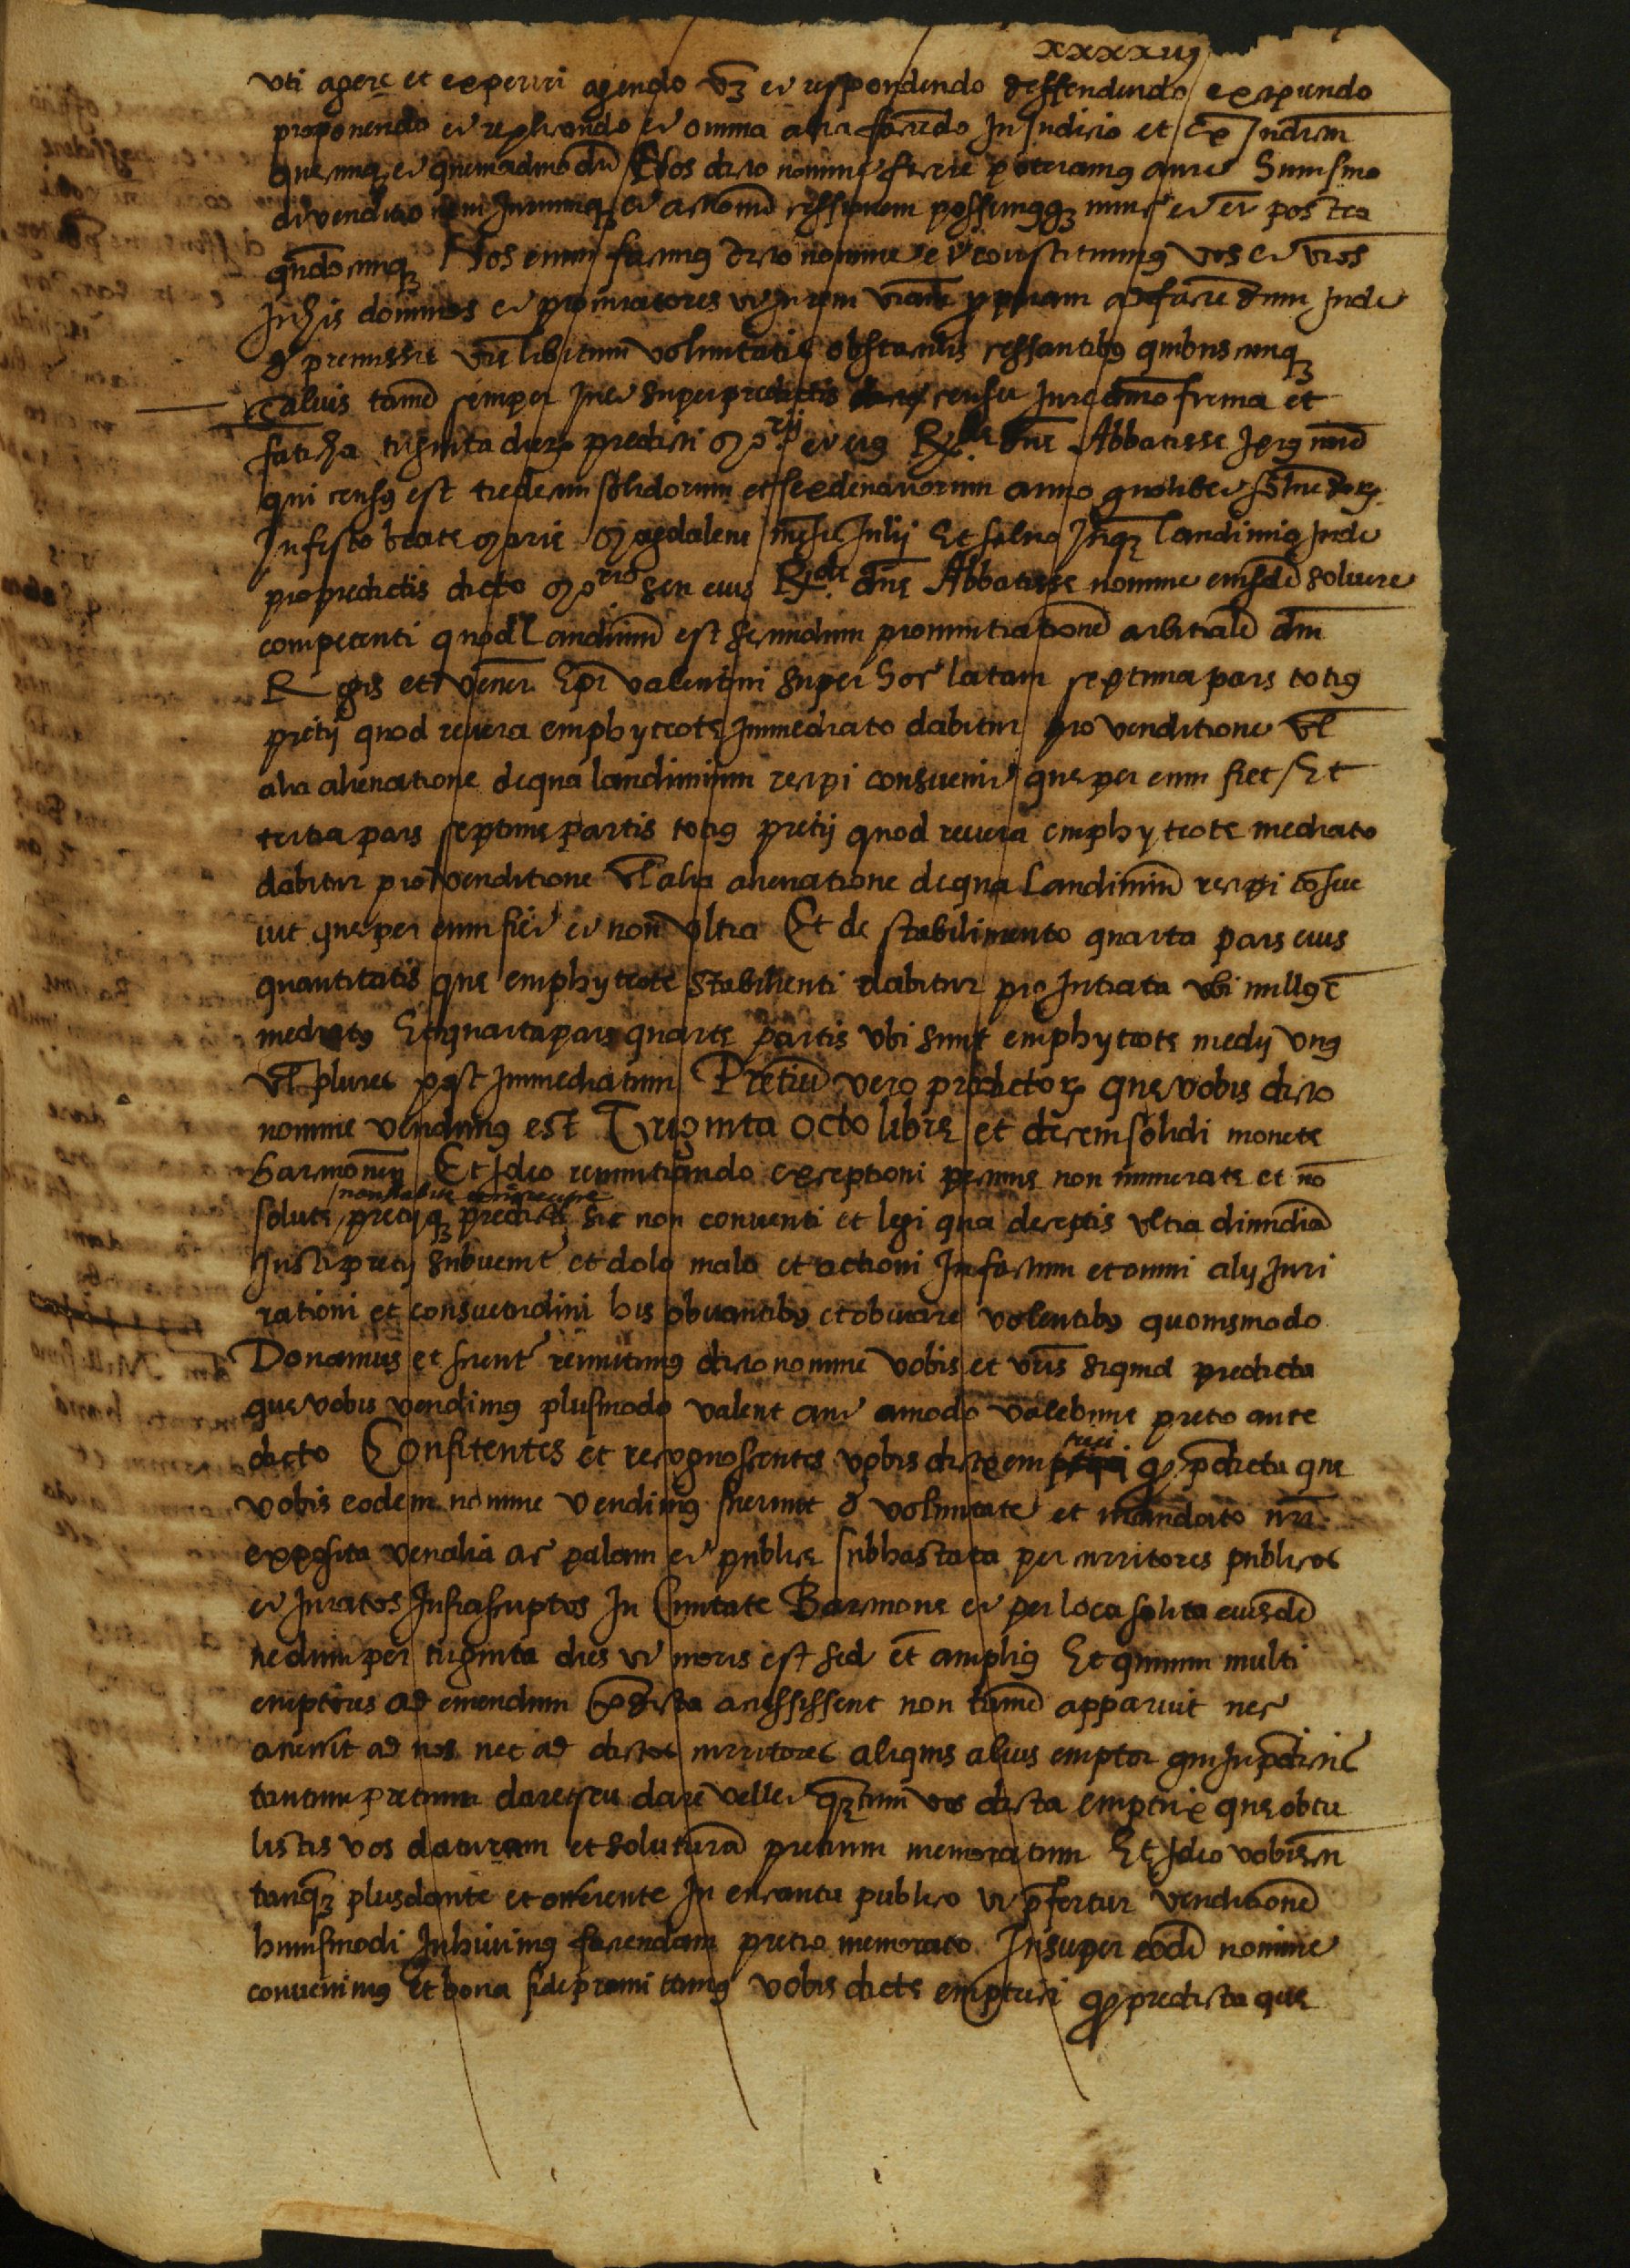 xxxxvij
vti agere et experiri agendo vz et respondendo deffendendo excipiendo
proponendo et replicando et omnia alia faciendo In Judicio et Ex Judicium
quecunq et quemadmodu Nos dicto nomine facere poteramus ante huiusmo
di venditionem Juriumq et actionu cessionem possemusq nunc et et postea
quadocunq Nos enim facimus dicto nomine et constituimus vos et vros
In his dominos et procuratores vt in rem vram ppriam ad faciedum Inde
de premissis vre libitum voluntatis obstaculis cessantibus quibuscunq
Saluis tame semper In et super predictis censu Jure dnio firma et
faticha triginta dierum predicti Mo.rij et eius R.de dne Abbatisse Jerusmo
qui census est tredecim solidorum et sex denariorum anno quolibet soluedorum
In festo beate Marie Magdalene mese Julij Et saluo Inq laudimio Inde
pro predictis dicto Mo.rio seu eius R.de dne Abbatisse nomine eiusde soluere
competenti quod laudimiu est secundum pronuntiatione arbitrale dni
Regis et vener. Epi valentini super hoc latam septima pars totius
pretij quod reuera emphyteote Immediato dabitur pro venditione vl
alia alienatione de qua laudimium recipi consueuit que per eum fiet / Et
tertia pars septime partis totius pretij quod reuera emphyteote mediato
dabitur pro venditione vl alia alienatione de qua laudimiu recipi cosue
uit que per eum fiet et non vltra Et de stabilimento quarta pars eius
quantitatis que emphyteote stabilienti dabitur pro Intrata vbi nullus e
mediatus Et quarta pars quarte partis vbi sunt emphyteote medij vnus
vl plures post Immediatum Pretiu vero predictorum que vobis dicto
nomine vendimus est Triginta octo libre et decem solidi monete
barcinonen Et Ideo renuntiando exceptioni pecunie non numerate et no
solute pretijq predicti sic non conuenti et legi qua deceptis vltra dimidia
Justi pretij subuenit et dolo malo et actioni In factum et omni alij Juri
rationi et consuetudini his obuiantibus et obuiare volentibus quouismodo
Donamus et remitimus dicto nomine vobis et vris siquid predicta
que vobis vendimus plusmodo valent aut amodo valebunt precio ante
dicto Confitentes et recognoscentes vobis dicte emptrici q pdicta que
vobis eodem nomine vendimus fuerunt de voluntate et mandato nri
exposita venalia ac palam et publice subhastata per curritores publicos
et Juratos Infrascriptos In Ciuitate Barcinone et per loca solita eiusde
nedum per triginta dies vt moris est sed et amplius Et quum multi
emptores ad emendum pdicta accessissent non tame apparuit nec
aduenit ad nos nec ad dictos curritores aliquis alius emptor qui In pdictis
tantum pretium daret seu dare vellet qztum vos dicta emptrix que obtu
listis vos daturam et solutura pretium memoratum Et Ideo vobis
tanqz plus dante et offerente In encantu publico vt pfertur venditione
huiusmodi Inhiuimus faciendam pretio memorato Insuper eode nomine
conuenimus et bona fide promittimus vobis dicte emptrici q predicta que